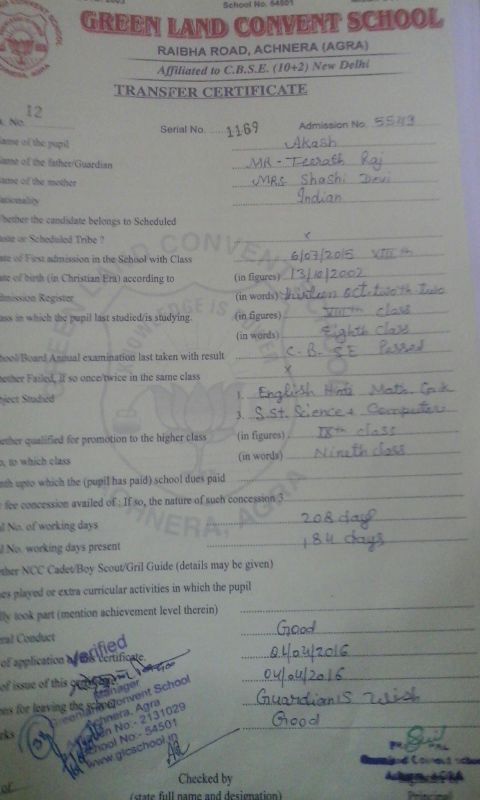 School No. 54501
GREEN LAND CONVENT SCHOOL
RAIBHA ROAD, ACHNERA (AGRA)
Affiliated to C.B.S.E. (10+2) New Delhi
TRANSFER CERTIFICATE
No. 12 Serial No. 1169 Admission No. 5549
ame of the pupil Akash
ame of the father/Guardian MR - Teerath Raj
ame of the mother MRS Shashi Devi
ationality Indian
hether the candidate belongs to Scheduled
aste or Scheduled Tribe ? x
ate of First admission in the School with Class 6/07/2015 VIIIth
ate of birth (in Christian Era) according to (in figures) 13/10/2002
dmission Register (in words) thirteen oct. two th. Two
ass in which the pupil last studied/is studying. (in figures) VIIIth class
(in words) Eighth class
hool/Board Annual examination last taken with result C.B.SE Passed
hether Failed, if so once/twice in the same class x
bject Studied 1. English Hindi Math G.k
3. S.St. Science & Computer
ether qualified for promotion to the higher class (in figures) IXth class
o, to which class (in words) Nineth class
nth upto which the (pupil has paid) school dues paid
fee concession availed of : If so, the nature of such concession
l No. of working days 208 days
l No. working days present 184 days
ther NCC Cadet/Boy Scout/Gril Guide (details may be given)
es played or extra curricular activities in which the pupil
lly took part (mention achievement level therein)
eral Conduct Good
of application of this certificate. 04/04/2016
of issue of this 04/04/2016
ns for leaving the school Guardian's Wish
rks Good
Verified
Manager
Green Land Convent School
Achnera, Agra
No.- 2131029
School No:- 54501
www.glcschool.in
Checked by
(state full name and designation)
Principal